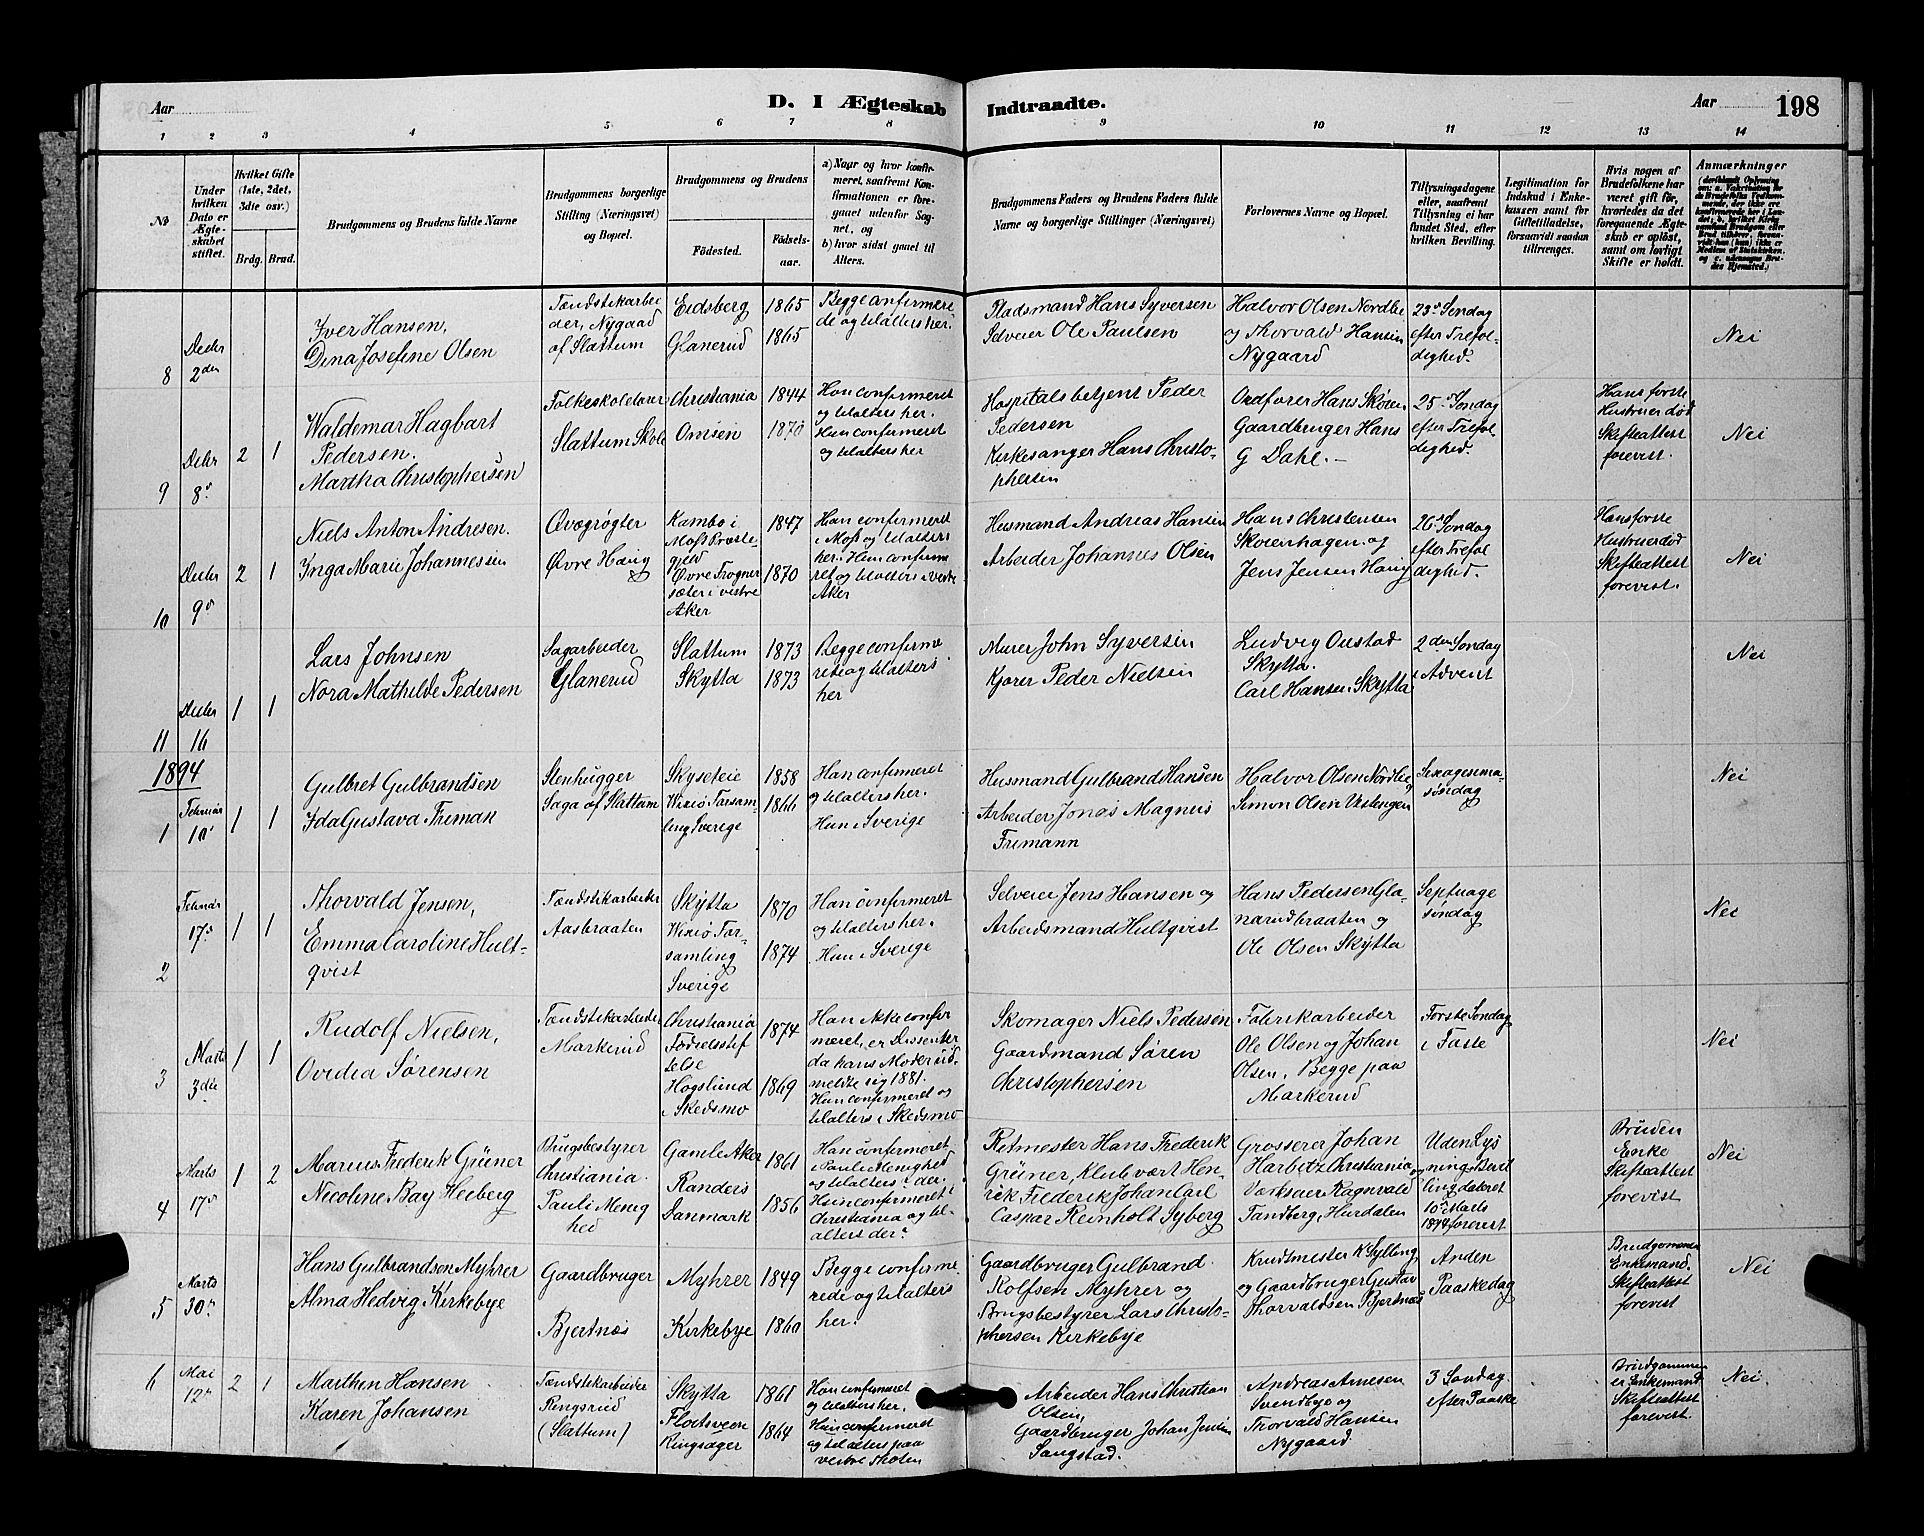 Aar
D. I Ægteskab Indtraadte.
Aar
198
1 2 3 4 5 6 7 8 9 10 11 12 13 14
No
Under hvilken Dato er Ægteskabet stiftet.
Hvilket Gifte (1ste, 2det, 3die osv.)
Brdg. Brud.
Brudgommens og Brudens fulde Navne
Brudgommens borgerlige Stilling (Næringsvei) og Bopæl.
Brudgommens og Brudens
Fødested.
Fødsels-aar.
a) Naar og hvor konfirmeret, saafremt Konfirmationen er foregaaet udenfor Sognet, og
b) hvor sidst gaaet til Alters.
Brudgommens Faders og Brudens Faders fulde Navne og borgerlige Stillinger (Næringsvei)
Forlovernes Navne og Bopæl.
Tillysningsdagene eller, saafremt Tillysning ei har fundet Sted, efter hvilken Bevilling.
Legitimation for Indskud i Enkekassen samt for Giftetilladelse, forsaavidt saadan tiltrænges.
Hvis nogen af Brudefolkene har været gift før, hvorledes da det foregaaende Ægteskab er opløst, samt om lovligt Skifte er holdt.
Anmærkninger
8
Decbr 2den
Iver Hansen,
Dina Josefine Olsen
Tændstikarbeider, Nygaard af Slattum
Eidsberg
Glanerud
1865
1865
Begge confirmerede og til alters her.
Pladsmand Hans Syversen
Selveier Ole Paulsen
Halvor Olsen Nordlie og Thorvald Hansen Nygaard
23de Søndag efter Trefoldighed.
Nei
9
Decbr 8de
2 1
Waldemar Hagbart Pedersen.
Martha Christophersen
Folkeskolelærer
Slattum Skole
Christiania
Omsen
1844
1870
Han confirmeret og til alters her.
Hun confirmeret og til alters her
Hospitalsbetjent Peder Pedersen
Kirkesanger Hans Christophersen
Ordfører Hans Skøien
Gaardbruger Hans G Dahl. -
25de Søndag efter Trefoldighed.
Hans første Hustru er død Skifteattest forevist.
Nei
10
Decbr 9de
2 1
Niels Anton Andresen.
Inga Marie Johannessen
Qvægrøgter
Øvre Haug
Kambo i Moss Præstegjeld
Øvre Frognersæter i vestre Aker
1847
1870
Han confirmeret i Moss og til alters her. Hun confirmeret og til alters i vestre Aker
Husmand Andreas Hansen
Arbeider Johannes Olsen
Hans Christensen Skøienhagen og Jens Jensen Haug
26de Søndag efter Trefoldighed.
Hans første Hustru er død Skifteattest forevist.
Nei
11
Decbr 16
1 1
Lars Johnsen
Nora Mathilde Pedersen
Sagarbeider
Glanerud
Slattum
Skytta
1873
1873
Begge confirmerede og til alters her
Murer John Syversen
Kjører Peder Nielsen
Ludvig Oustad Skytta.
Carl Hansen, Skytta
2den Søndag i Advent
Nei
1894
1
Februar 10de
1 1
Gulbret Gulbrandsen
Ida Gustava Friman
Stenhugger
Saga af Slattum
Skyseteie
Wexiø Forsamling Sverige
1858
1866
Han confirmeret og til alters her.
Hun i Sverige
Husmand Gulbrand Hansen
Arbeider Jonas Magnus Frimann
Halvor Olsen Nordlie
Simon Olsen Vestengen
Sexagesima-søndag
Nei
2
Februar 17de
1 1
Thorvald Jensen,
Emma Caroline Hultqvist
Tændstikarbeider
Aasbraaten
Skytta
Wexiø Forsamling Sverige
1870
1874
Han confirmeret og til alters her.
Hun i Sverige
Selveier Jens Hansen og
Arbeidsmand Hultqvist
Hans Pedersen Glanarudbraaten og
Ole Olsen Skytta
Septuage søndag
Nei
3
Marts 3die
1 1
Rudolf Nielsen,
Ovidia Sørensen
Tændstikarbeider
Markerud
Christiania Fødselsstiftelse
Høgslund i Skedsmo
1874
1869
Han ikke confirmeret, er Dissenter da hans Moder udmeldte sig 1881.
Hun confirmeret og til alters i Skedsmo
Skomager Niels Pedersen
Gaardmand Søren Christophersen
Fabrikarbeider Ole Olsen og Johan Olsen, Begge paa Markerud
Første Søndag i Faste
Nei
4
Marts 17de
1 2
Marius Frederik Grüner
Nicoline Bay Heeberg
Brugsbestyrer
Christiania.
Pauli Menighed
Gamle Aker
Randers Danmark
1861
1856
Han confirmeret i Pauli Menighed og til alters i der.
Hun confirmeret i Christiania og til alters der.
Retmester Hans Frederik Grüner, Klubvært Henrik Frederik Johan Carl Caspar Reinholt Syberg
Grosserer Johan Harbitz Christiania og
Værkseier Ragnvald Tandberg, Hurdalen
Uden Lysning Bevilling dateret 10de Marts 1894 forevist
Bruden Enke Skifteattest forevist
Nei
5
Marts 30te
Hans Gulbrandsen Myhrer
Alma Hedvig Kirkebye
Gaardbruger
Bjertnæs
Myhrer
Kirkebye
1849
1860
Begge confirmerede og til alters her.
Gaardbruger Gulbrand Rolfsen Myhrer og
Brugsbestyrer Lars Christophersen Kirkebye
Krudtmester K Sylling og Gaardbruger Gustav Thorvaldsen Bjertnæs
Anden Paaskedag
Brudgommen Enkemand. Skifteattest forevist
Nei
6
Mai 12te
2 1
Marthin Hansen
Karen Johansen
Tændstikarbeider
Ringsrud (Slattum)
Skytta
Ringsager
1861
1864
Han confirmeret og til alters her.
Hun confirmeret og til alters paa vestre Thoten
Arbeider Hans Christian Olsen,
Gaardbruger Johan Jensen Sangstad.
Andreas Arnesen Svendby og
Thorvald Hansen Nygaard
3 Søndag efter Paaske
Brudgommen er Enkemand Skifteattest forevist.
Nei.